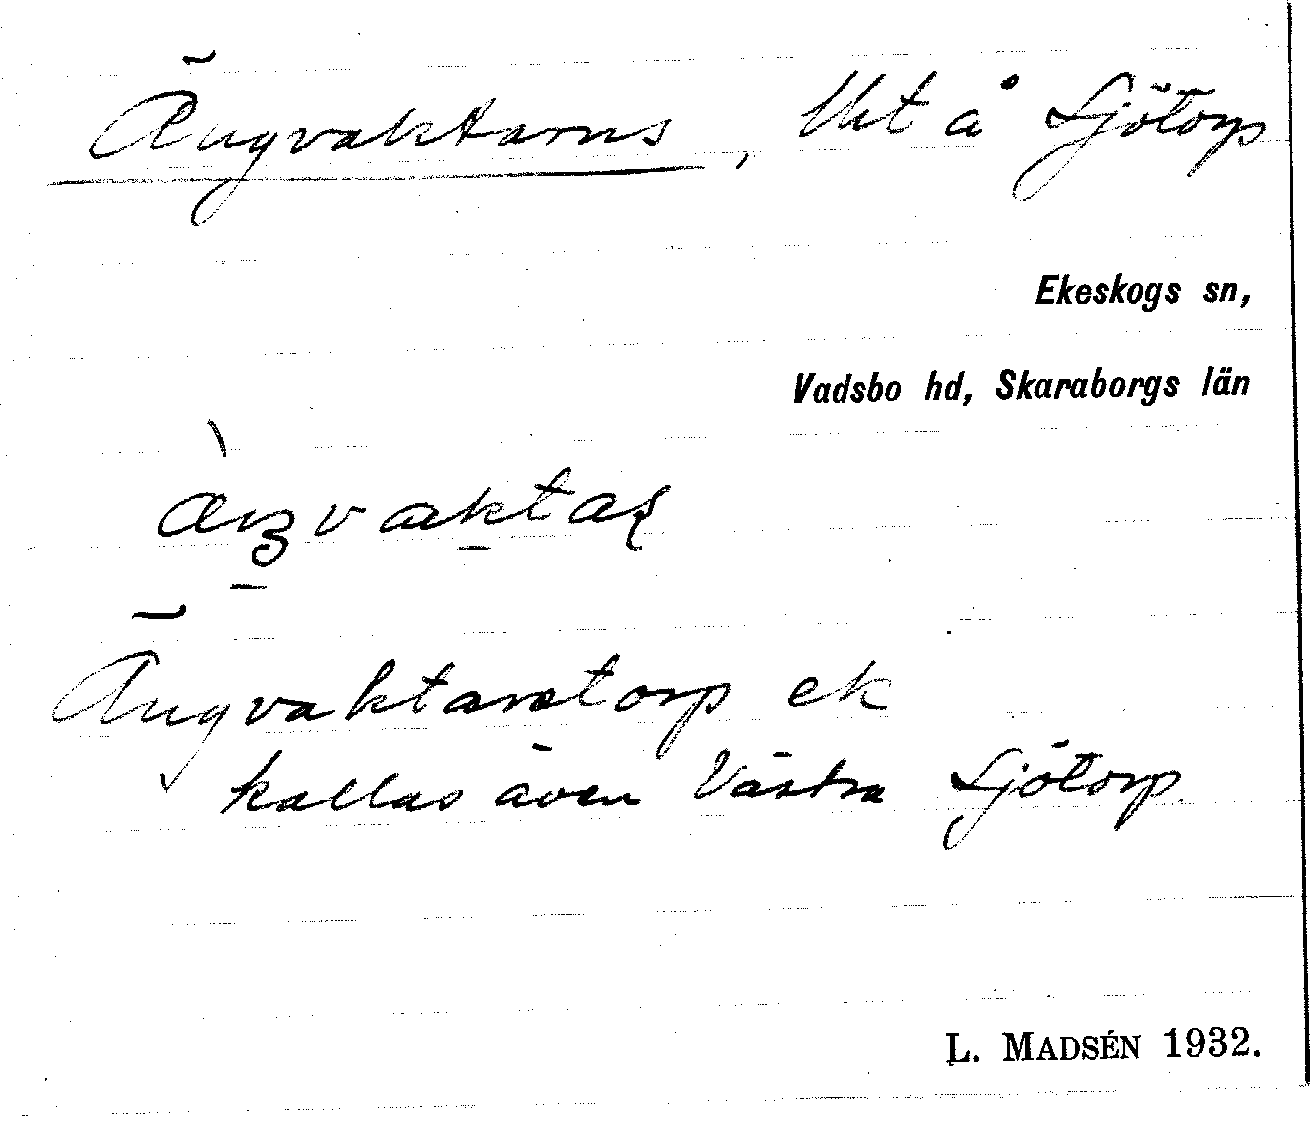 Ängvaktarns, Uht å Sjötorp
Ekeskogs sn,
Vadsbo hd, Skaraborgs län
Ängvaktarstorp ek
kallas även Västra Sjötorp
L. MADSÉN 1932.